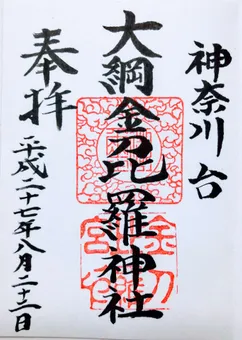 神奈川台
大綱金刀比羅神社
奉拝
平成二十七年八月二十二日